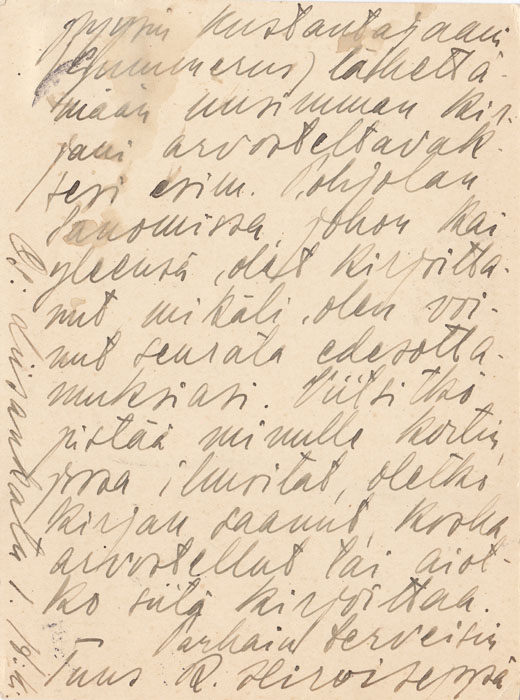 pyysin kustantajaani
(Gummerus) lähettä-
mään uusimman kir-
jani arvosteltavak-
sesi esim. Pohjolan
Sanomissa, johon kai
yleensä olet kirjoitta-
nut mikäli olen voi-
nut seurata edesotta-
muksiasi. Viitsitkö
pistää minulle kortin,
jossa ilmoitat, oletko
kirjan saanut, koska
arvostellut tai aiot-
ko siitä kirjoittaa.
Parhain terveisin
Tuus R. Hirviseppä
Os. Liisankatu 1.